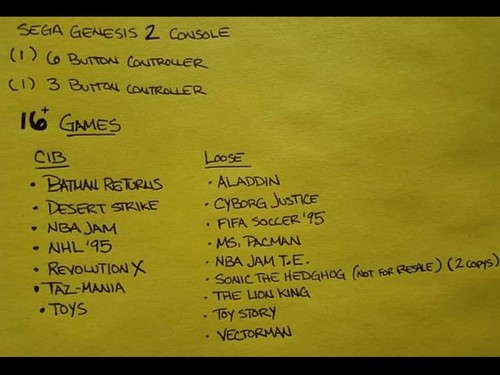 SEGA GENESIS 2 CONSOLE
(1) 6 BUTTON CONTROLLER
(1) 3 BUTTON CONTROLLER
16+ GAMES
CIB
• BATMAN RETURNS
• DESERT STRIKE
• NBA JAM
• NHL '95
• REVOLUTION X
• TAZ-MANIA
• TOYS
LOOSE
• ALADDIN
• CYBORG JUSTICE
• FIFA SOCCER '95
• MS. PACMAN
• NBA JAM T.E.
• SONIC THE HEDGHOG (NOT FOR RESALE) (2 COPYS)
• THE LION KING
• TOY STORY
• VECTORMAN